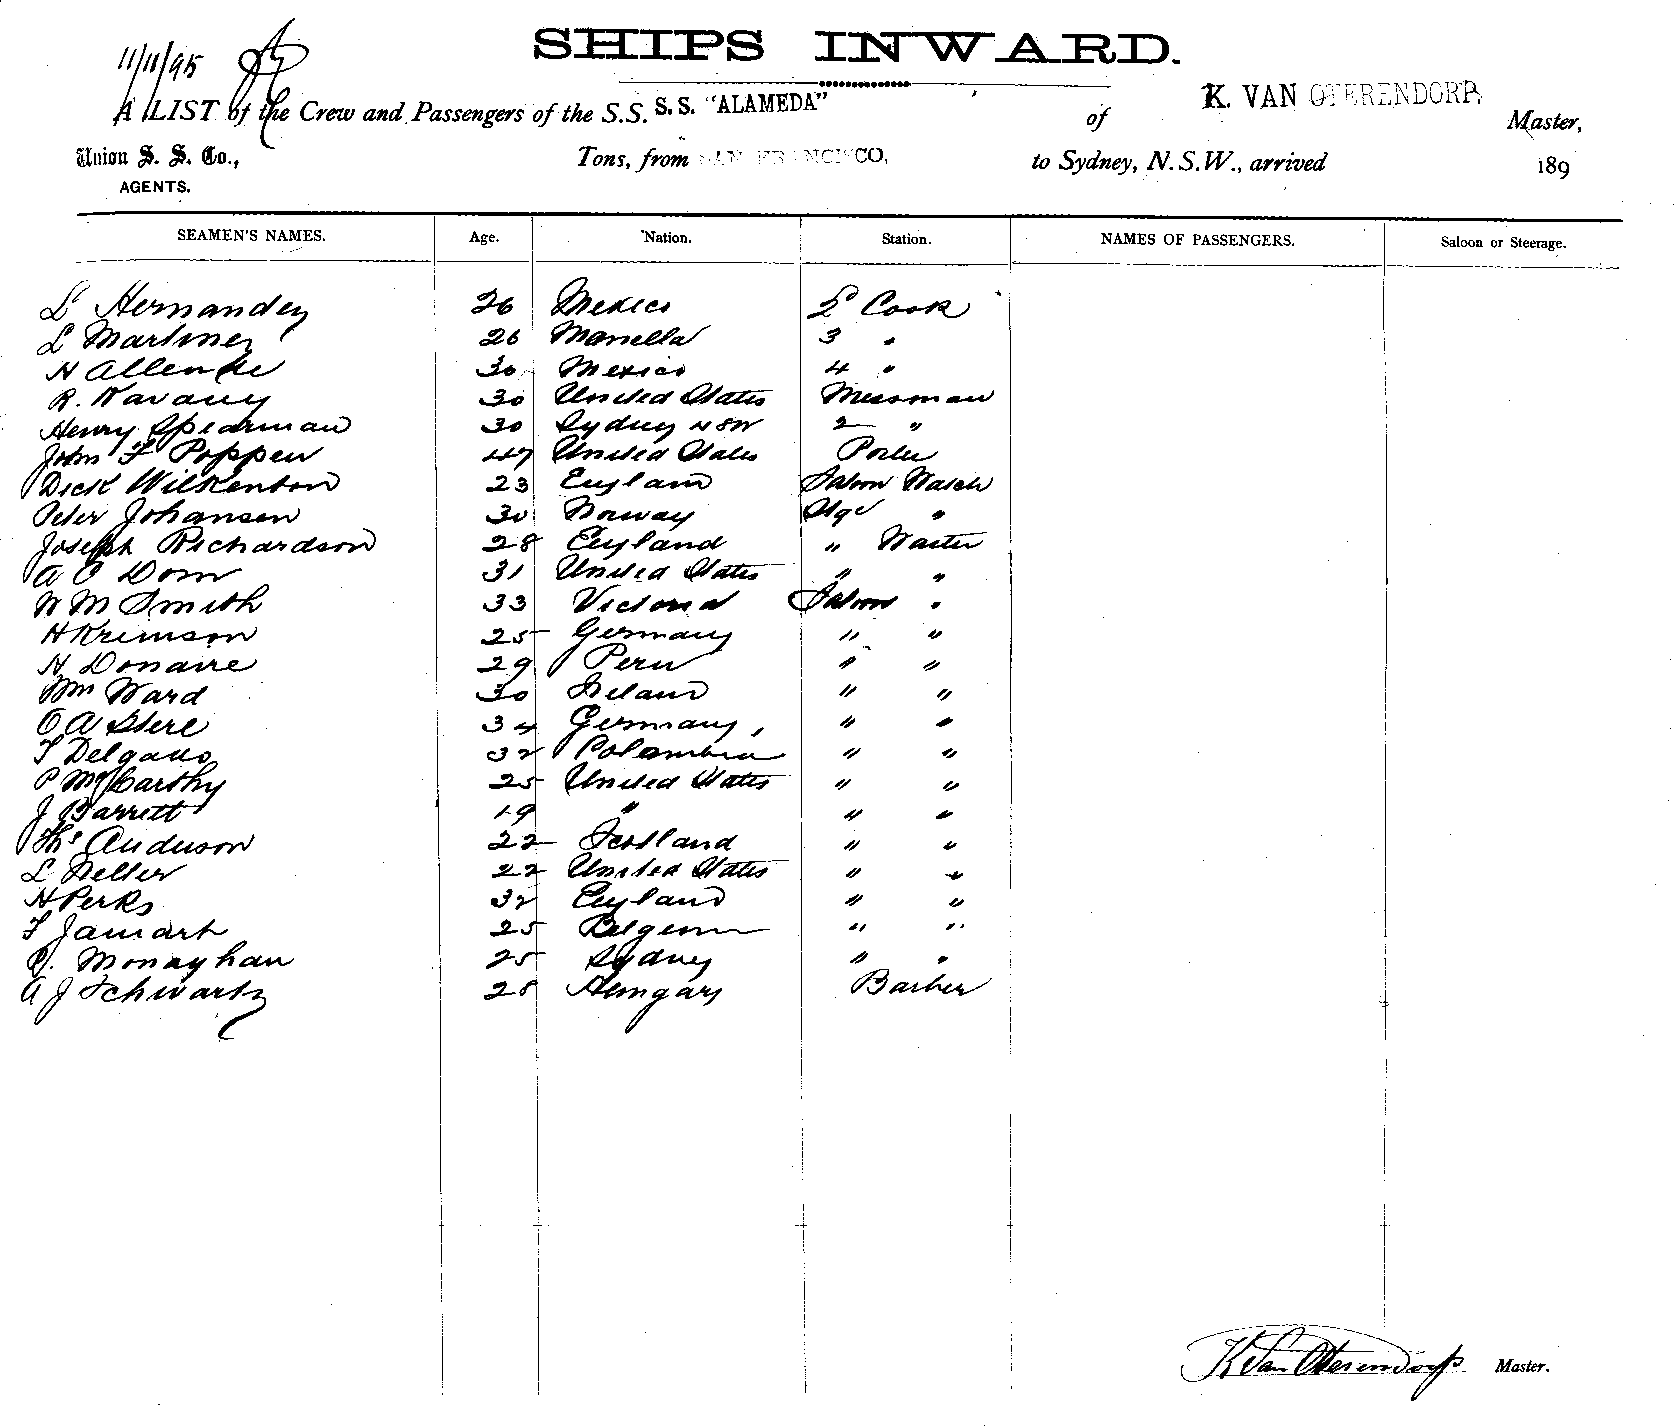 11/11/95
SHIPS INWARD.
A LIST of the Crew and Passengers of the S.S. S.S. "ALAMEDA" of K. VAN OTERENDORP, Master,
Union S. S. Co., AGENTS. Tons, from SAN FRANCISCO, to Sydney, N.S.W., arrived 189
SEAMEN'S NAMES. Age. Nation. Station. NAMES OF PASSENGERS. Saloon or Steerage.
L Hernandez 26 Mexico 2 Cook
L Martinez 26 Manella 3 "
H Allende 30 Mexico 4 "
R. 30 United States Messman
Henry Spearman 30 Sydney NSW 2 "
John F Poppen 47 United States Porter
Dick Wilkenson 23 England Saloon Watch
Peter Johansen 30 Norway Stge "
Joseph Richardson 28 England " Waiter
A C Dorn 31 United States " "
W M Smith 33 Victoria Saloon "
H Kremson 25 Germany " "
H Donaire 29 Peru " "
Wm Ward 30 Ireland " "
O A 34 Germany, " "
F Delgado 32 Columbia " "
P McCarthy 25 United States " "
J Barrett 19 " " "
Ths Anderson 22 Scotland " "
L 22 United States " "
H Perks 32 England " "
F Jamart 25 Belgium " "
Monaghan 25 Sydney " "
A J Schwartz 28 Hungary Barber
K Van Oterendorp Master.